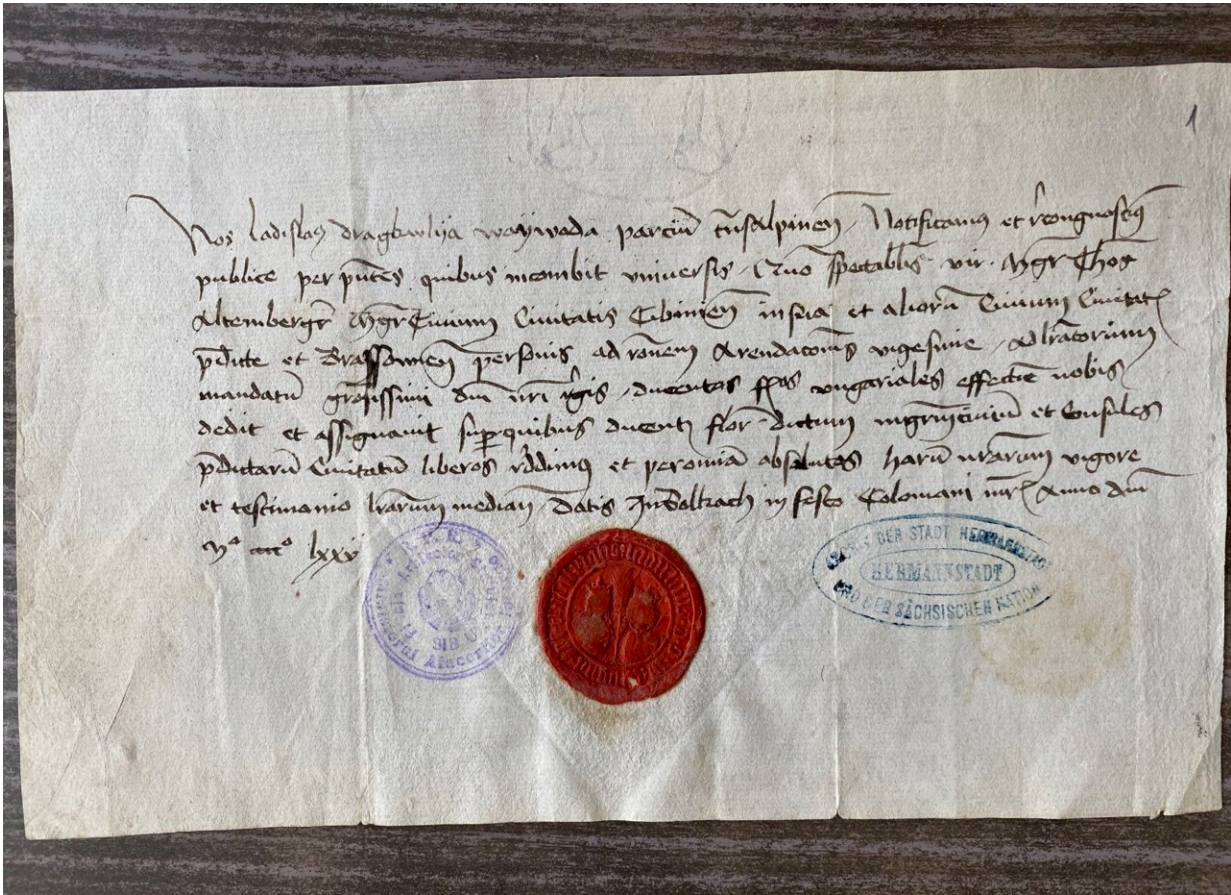 1
Nos ladislaus dragkwlya waywada parciū trāsalpineñ Notificamus et recongnoscimus
publice per pñtes quibus incombit vniversis Quo spectabilis vir Mgr Thos
Altemberger Mgr Civium Civitatis Cibinieñ in sua et aliorū Civium Civitatū
pdicte et Brassowieñ personis ad ronem Arendacionis vigesime ad lratorium
mandatū dm nri regis ducentos flos vngariales effective nobis
dedit et assignavit super quibus ducentis floř dictum mgrm civiū et Consules
pdictarū Civitatū liberos reddimus et per omīa absolutos harū nrarum vigore
et testimonio lrarum median Datis In in festo Colomani mr Anno dm
Mº ccccº lxxv
SIBIU
ARCHIV DER STADT HERMANNSTADT
HERMANNSTADT
UND DER SÄCHSISCHEN NATION